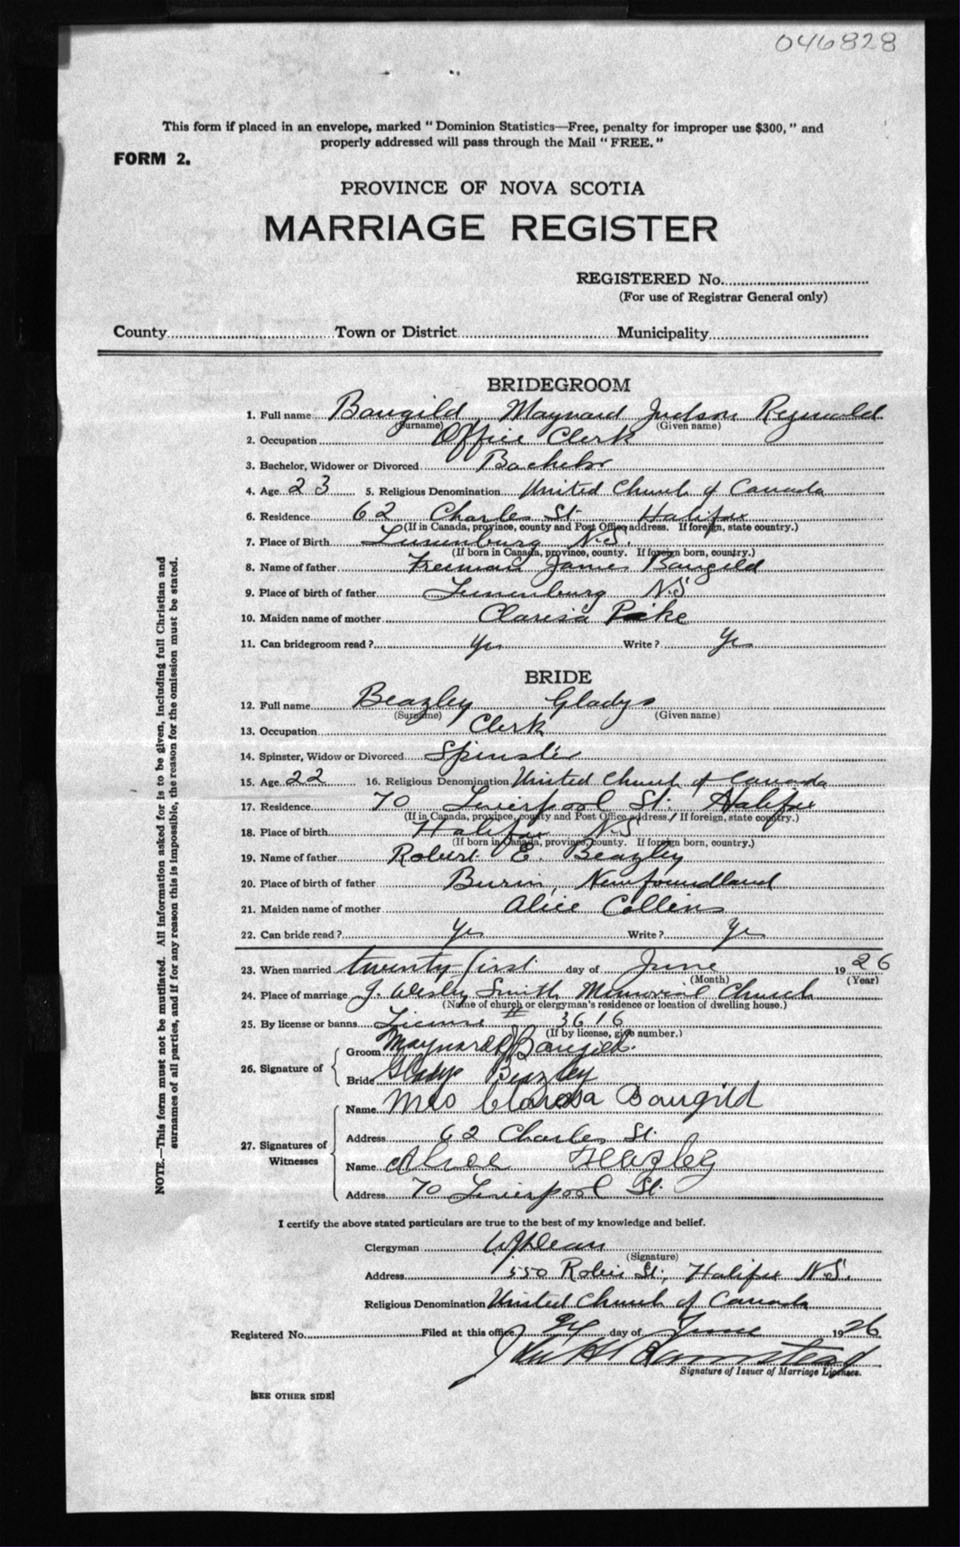 046828
This form if placed in an envelope, marked "Dominion Statistics—Free, penalty for improper use $300," and
properly addressed will pass through the Mail "FREE."
FORM 2.
PROVINCE OF NOVA SCOTIA
MARRIAGE REGISTER
REGISTERED No.
(For use of Registrar General only)
County Town or District Municipality
BRIDEGROOM
1. Full name Baugild Maynard Judson Reginald
(Surname) (Given name)
2. Occupation Office Clerk
3. Bachelor, Widower or Divorced Bachelor
4. Age 23 5. Religious Denomination United Church of Canada
6. Residence 62 Charles St. Halifax
(If in Canada, province, county and Post Office address. If foreign, state country.)
7. Place of Birth Lunenburg N.S.
(If born in Canada, province, county. If foreign born, country.)
8. Name of father Freeman James Baugild
9. Place of birth of father Lunenburg N.S
10. Maiden name of mother Clarisa
11. Can bridegroom read? Yes Write? Yes
BRIDE
12. Full name Beazley Gladys
(Surname) (Given name)
13. Occupation Clerk
14. Spinster, Widow or Divorced Spinster
15. Age 22 16. Religious Denomination United Church of Canada
17. Residence 70 Liverpool St. Halifax
(If in Canada, province, county and Post Office address. If foreign, state country.)
18. Place of birth Halifax N.S.
(If born in Canada, province, county. If foreign born, country.)
19. Name of father Robert E. Beazley
20. Place of birth of father Burin, Newfoundland
21. Maiden name of mother Alice Collins
22. Can bride read? Yes Write? Yes
23. When married twenty first day of June 1926
(Month) (Year)
24. Place of marriage J. Wesley Smith Memorial Church
(Name of church or clergyman's residence or location of dwelling house.)
25. By license or banns License # 3616
(If by license, give number.)
26. Signature of
Groom Maynard J Baugild.
Bride Gladys Beazley
27. Signatures of Witnesses
Name Mrs Clarissa Baugild
Address 62 Charles St.
Name Alice Beazley
Address 70 Liverpool St.
I certify the above stated particulars are true to the best of my knowledge and belief.
Clergyman W J Dean
(Signature)
Address 550 Robie St., Halifax N.S.
Religious Denomination United Church of Canada
Registered No. Filed at this office day of June 1926
Signature of Issuer of Marriage Licenses.
[SEE OTHER SIDE]
NOTE.—This form must not be mutilated. All information asked for is to be given, including full Christian and
surnames of all parties, and if for any reason this is impossible, the reason for the omission must be stated.